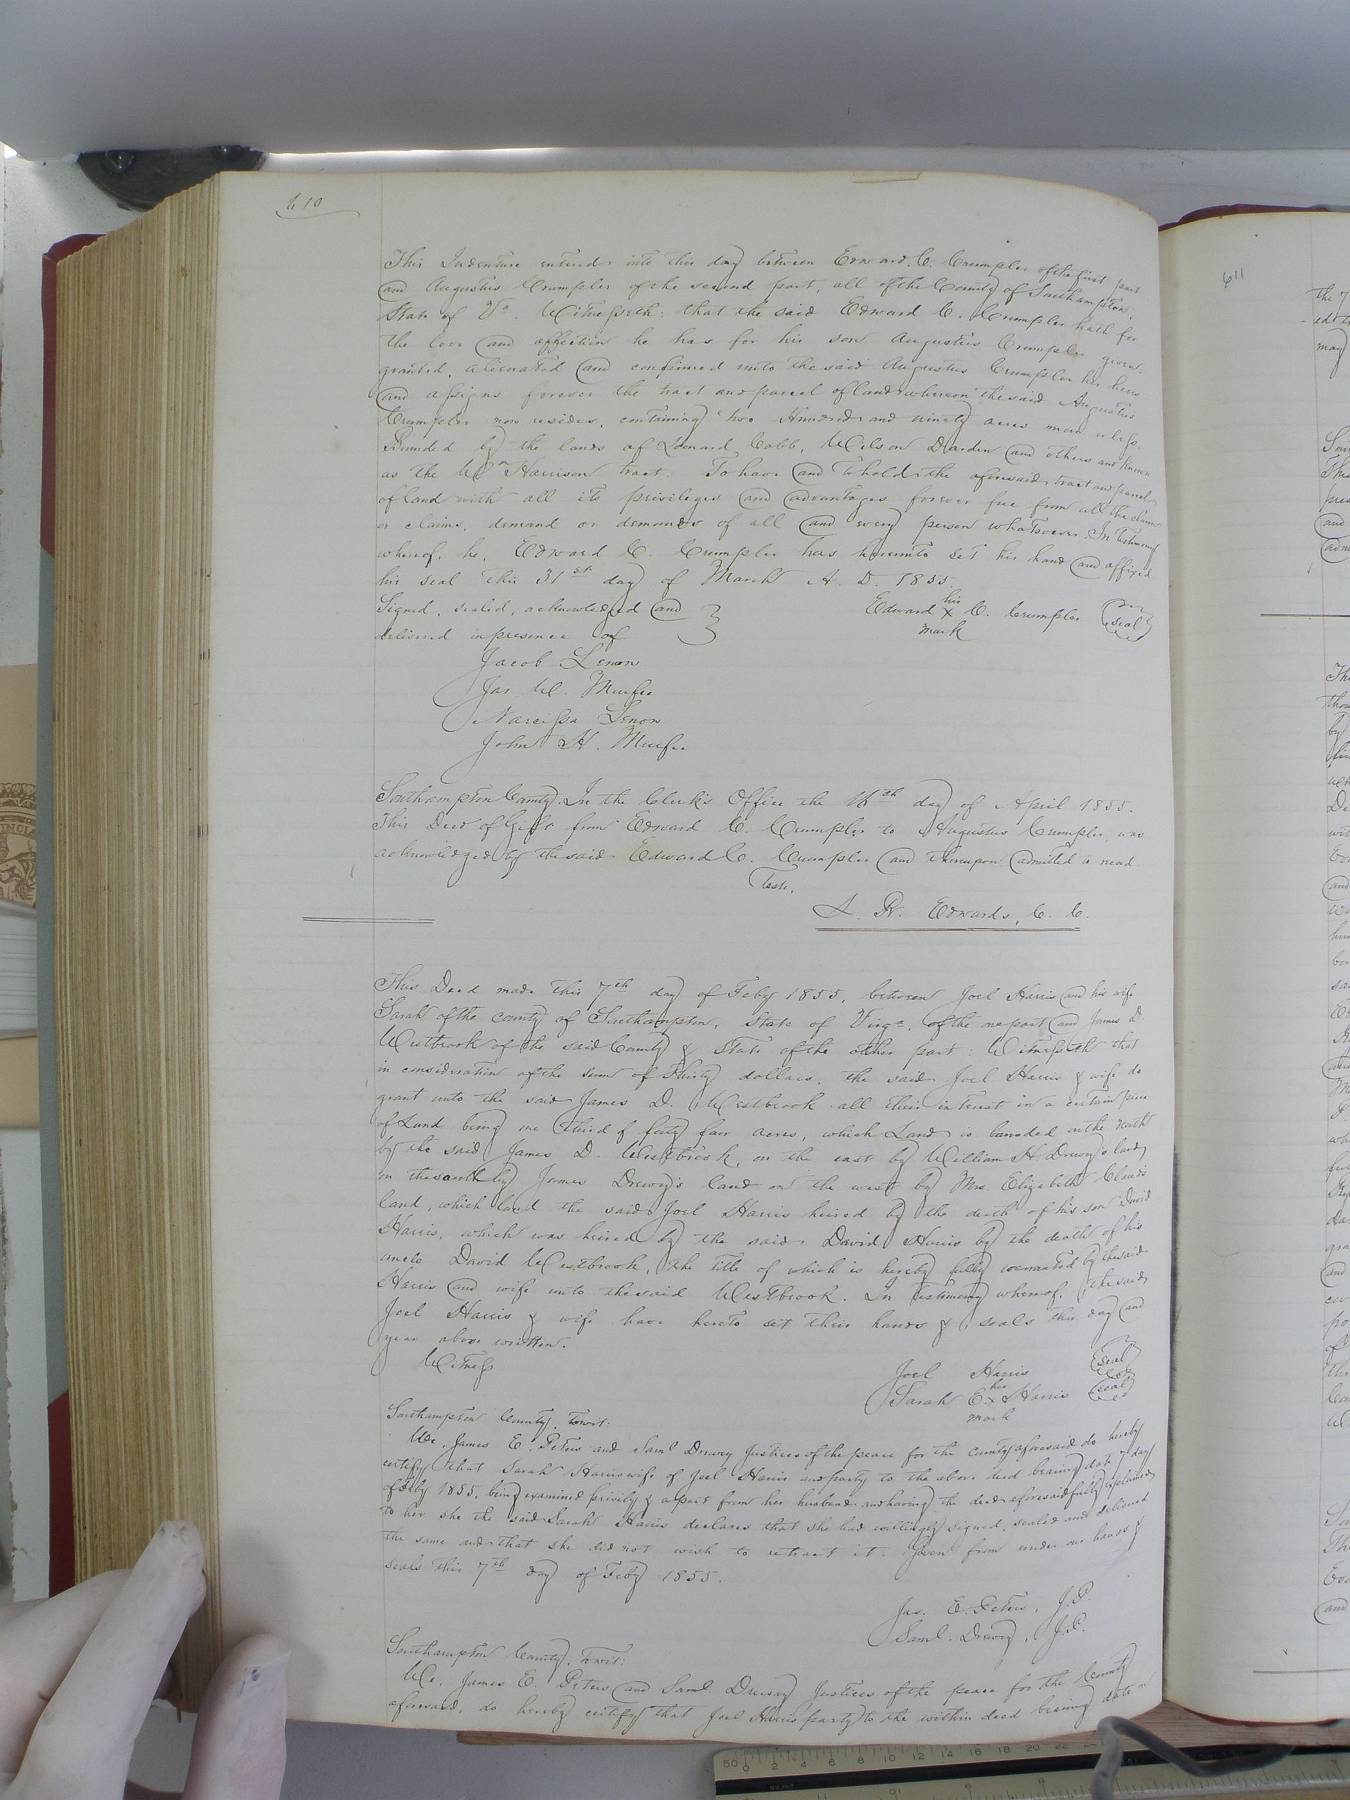 610
This Indenture entered into this day between Edward C. Crumpler of the first part
and Augustus Crumpler of the second part, all of the County of Southampton,
State of Va. Witnesseth: that the said Edward C. Crumpler hath for
the love and affection he has for his son Augustus Crumpler given,
granted, alienated and confirmed unto the said Augustus Crumpler his heirs
and assigns forever the tract and parcel of land whereon the said Augustus
Crumpler now resides, containing two Hundred and ninety acres more or less.
Bounded by the lands of Leonard Cobb, Wilson Darden and others and known
as the Wm Harrison tract. To have and to hold the aforesaid tract and parcel
of land with all its privileges and advantages forever free from all the claim
or claims, demand or demands of all and every person whatsoever. In testimony
whereof, he, Edward C. Crumpler has hereunto set his hand and affixed
his seal this 31st day of March A. D. 1855.
Signed, sealed, acknowledged and
delivered in presence of
Edward his X mark C. Crumpler (seal)
Jacob Lenow
Jas. W. Murfee
Narcissa Lenow
John H. Murfee
Southampton County. In the Clerk's Office the 16th day of April 1855.
This Deed of Gift from Edward C. Crumpler to Augustus Crumpler, was
acknowledged by the said Edward C. Crumpler and thereupon admitted to record
Teste,
L. R. Edwards, C. C.
This Deed made this 7th day of Feby 1855, between Joel Harris and his wife
Sarah of the county of Southampton, State of Virga. of the one part and James D.
Westbrook of the said County & State of the other part: Witnesseth that
in consideration of the sum of Thirty dollars, the said Joel Harris & wife do
grant unto the said James D. Westbrook all their interest in a certain piece
of Land being one third of forty four acres, which Land is bounded on the North
by the said James D. Westbrook, on the east by William H Drewry's land
on the south by James Drewry's land on the west by Mrs. Elizabeth Claud's
land, which land the said Joel Harris heired by the death of his son David
Harris, which was heired by the said David Harris by the death of his
uncle David Westbrook, the title of which is hereby fully warranted by the said
Harris and wife unto the said Westbrook. In testimony whereof, the said
Joel Harris & wife have hereto set their hands & seals this day and
year above written.
Witness
Joel Harris (seal)
Sarah E. her X mark Harris (seal)
Southampton County, Towit:
We, James E. Peters and Saml Drewry Justices of the peace for the county aforesaid do hereby
certify that Sarah Harris wife of Joel Harris and party to the above deed bearing date 7 day
of Feby 1855, being examined privily & apart from her husband and having the deed aforesaid fully explained
to her she the said Sarah Harris declares that she had willingly signed, sealed and delivered
the same and that she did not wish to retract it. Given from under our hands &
seals this 7th day of Feby 1855.
Jas. E. Peters, J.P.
Saml. Drewry, J.P.
Southampton County, Towit:
We, James E. Peters and Saml. Drewry Justices of the peace for the County
aforesaid, do hereby certify that Joel Harris party to the within deed bearing date on
611